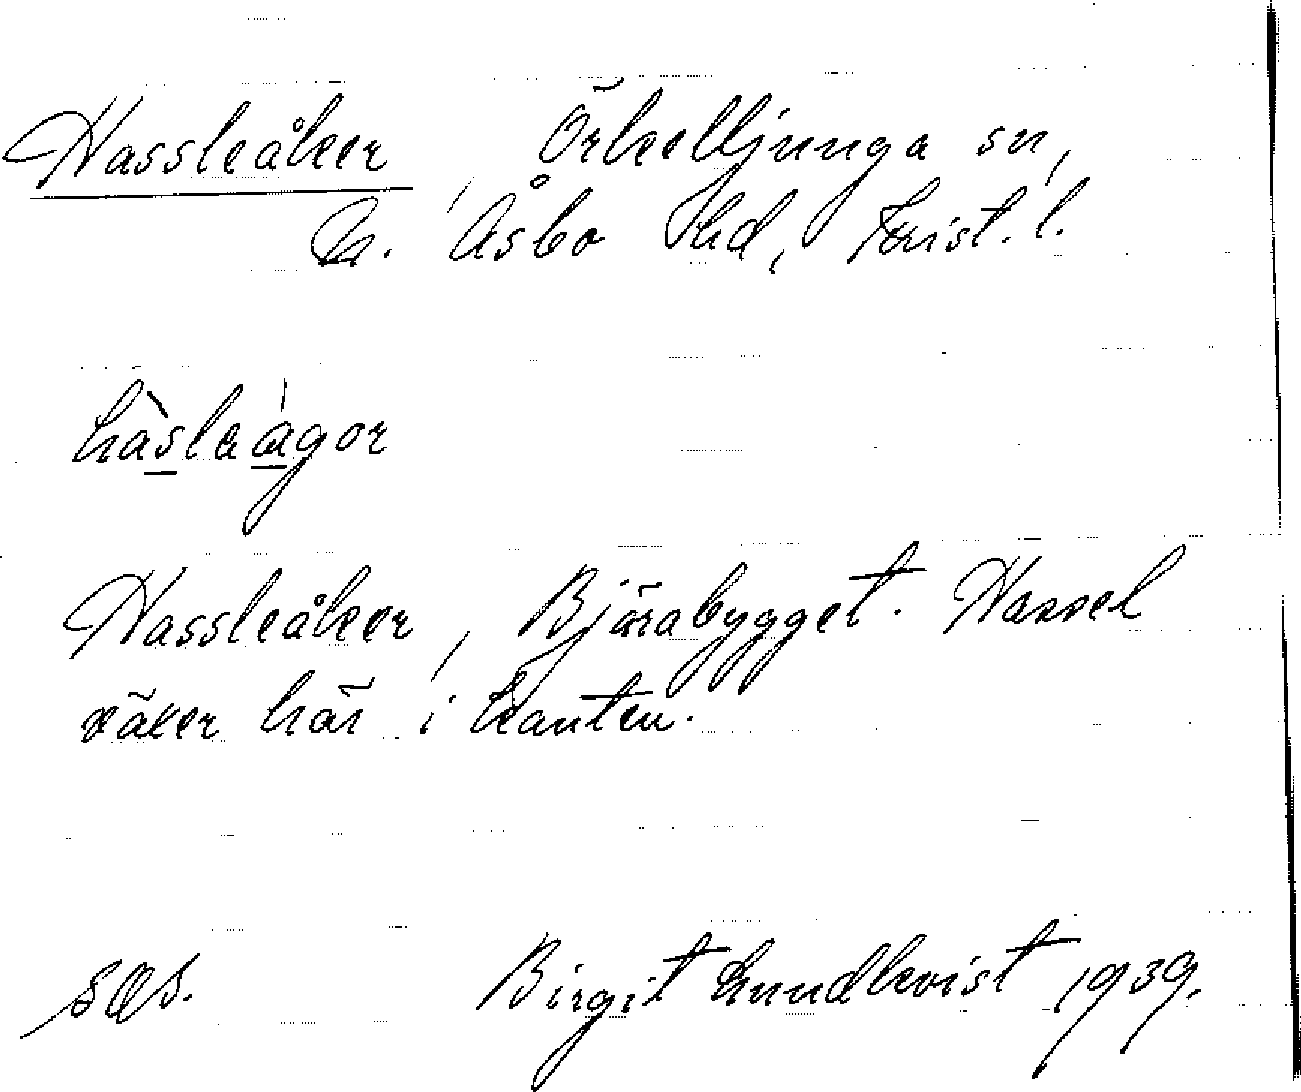 Hassleåker Örkelljunga sn,
N. Åsbo hd, Krist. l.
hàsleàgor
Hassleåker, Bjärabygget. Hassel
växer här i kanten.
sås.
Birgit Lundkvist 1939.